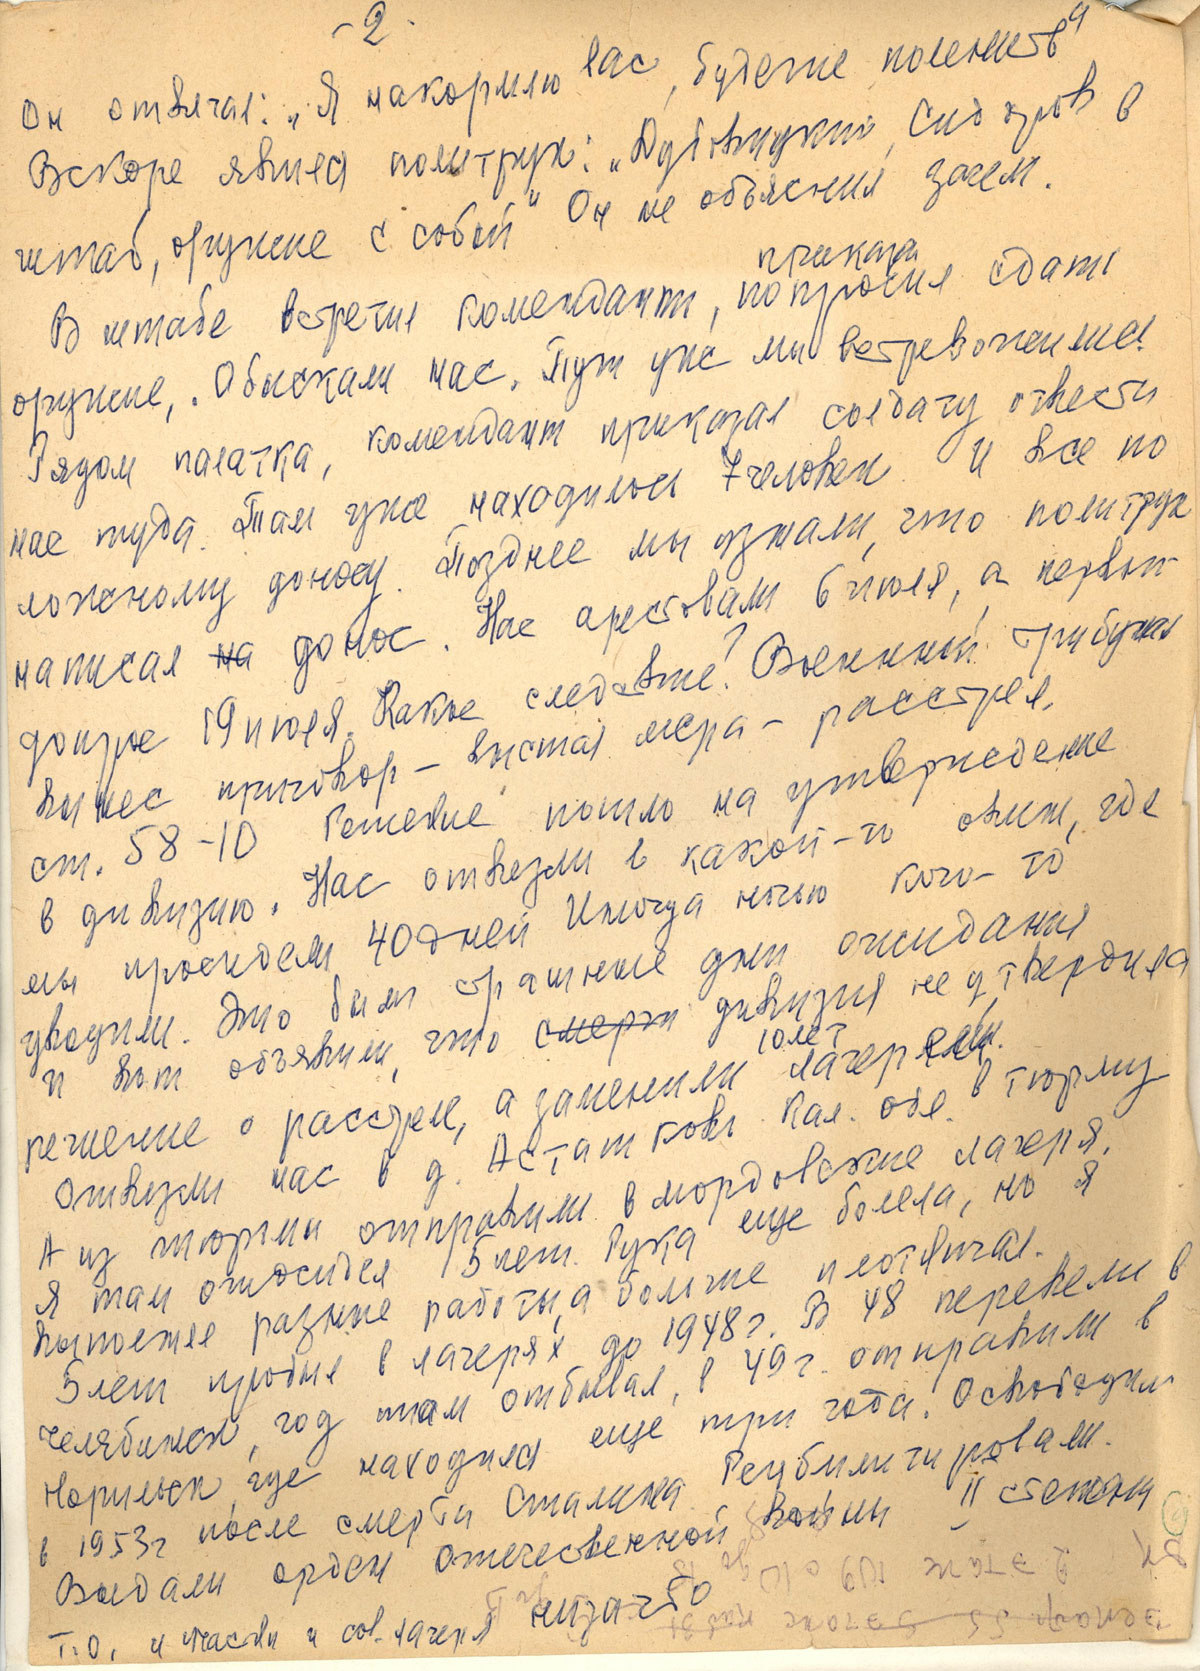 - 2 -
Он отвечал: „Я накормлю вас, будете помнить"
Вскоре явился политрук: „Дубовицкий, Сидоров в
штаб, оружие с собой" Он не объяснил зачем.
В штабе встретил комендант, попросил сдать
приказал
оружие,. Обыскали нас. Тут уже мы встревожились.
Рядом палатка, комендант приказал солдату отвести
нас туда. Там уже находились 7 человек и все по
ложному доносу. Позднее мы узнали, что политрук
написал на донос. Нас арестовали 6 июля, а первый
допрос 19 июля. Какое следствие? Военный трибунал
вынес приговор – высшая мера – расстрел.
ст. 58-10 Решение пошло на утверждение
в дивизию. Нас отвезли в какой-то овин, где
мы просидели 40 дней Иногда ночью кого-то
уводили. Это были страшные дни ожидания
и вот объявили, что смерти дивизия не утвердила
10 лет
решение о расстреле, а заменили лагерями.
Отвезли нас в д. Асташково Кал. обл. в тюрьму
А из тюрьмы отправили в мордовские лагеря.
Я там отсидел 5 лет. Рука еще болела, но я
выполнял разные работы, а больше
5 лет пробыл в лагерях до 1948 г. В 48 перевели в
Челябинск, год там отбывал, в 49 г. отправили в
Норильск, где находился еще три года. Освободили
в 1953 г после смерти Сталина. Реабилитировали.
Выдали орден Отечественной войны II степени
Т.О. и сов. лагеря ни за что